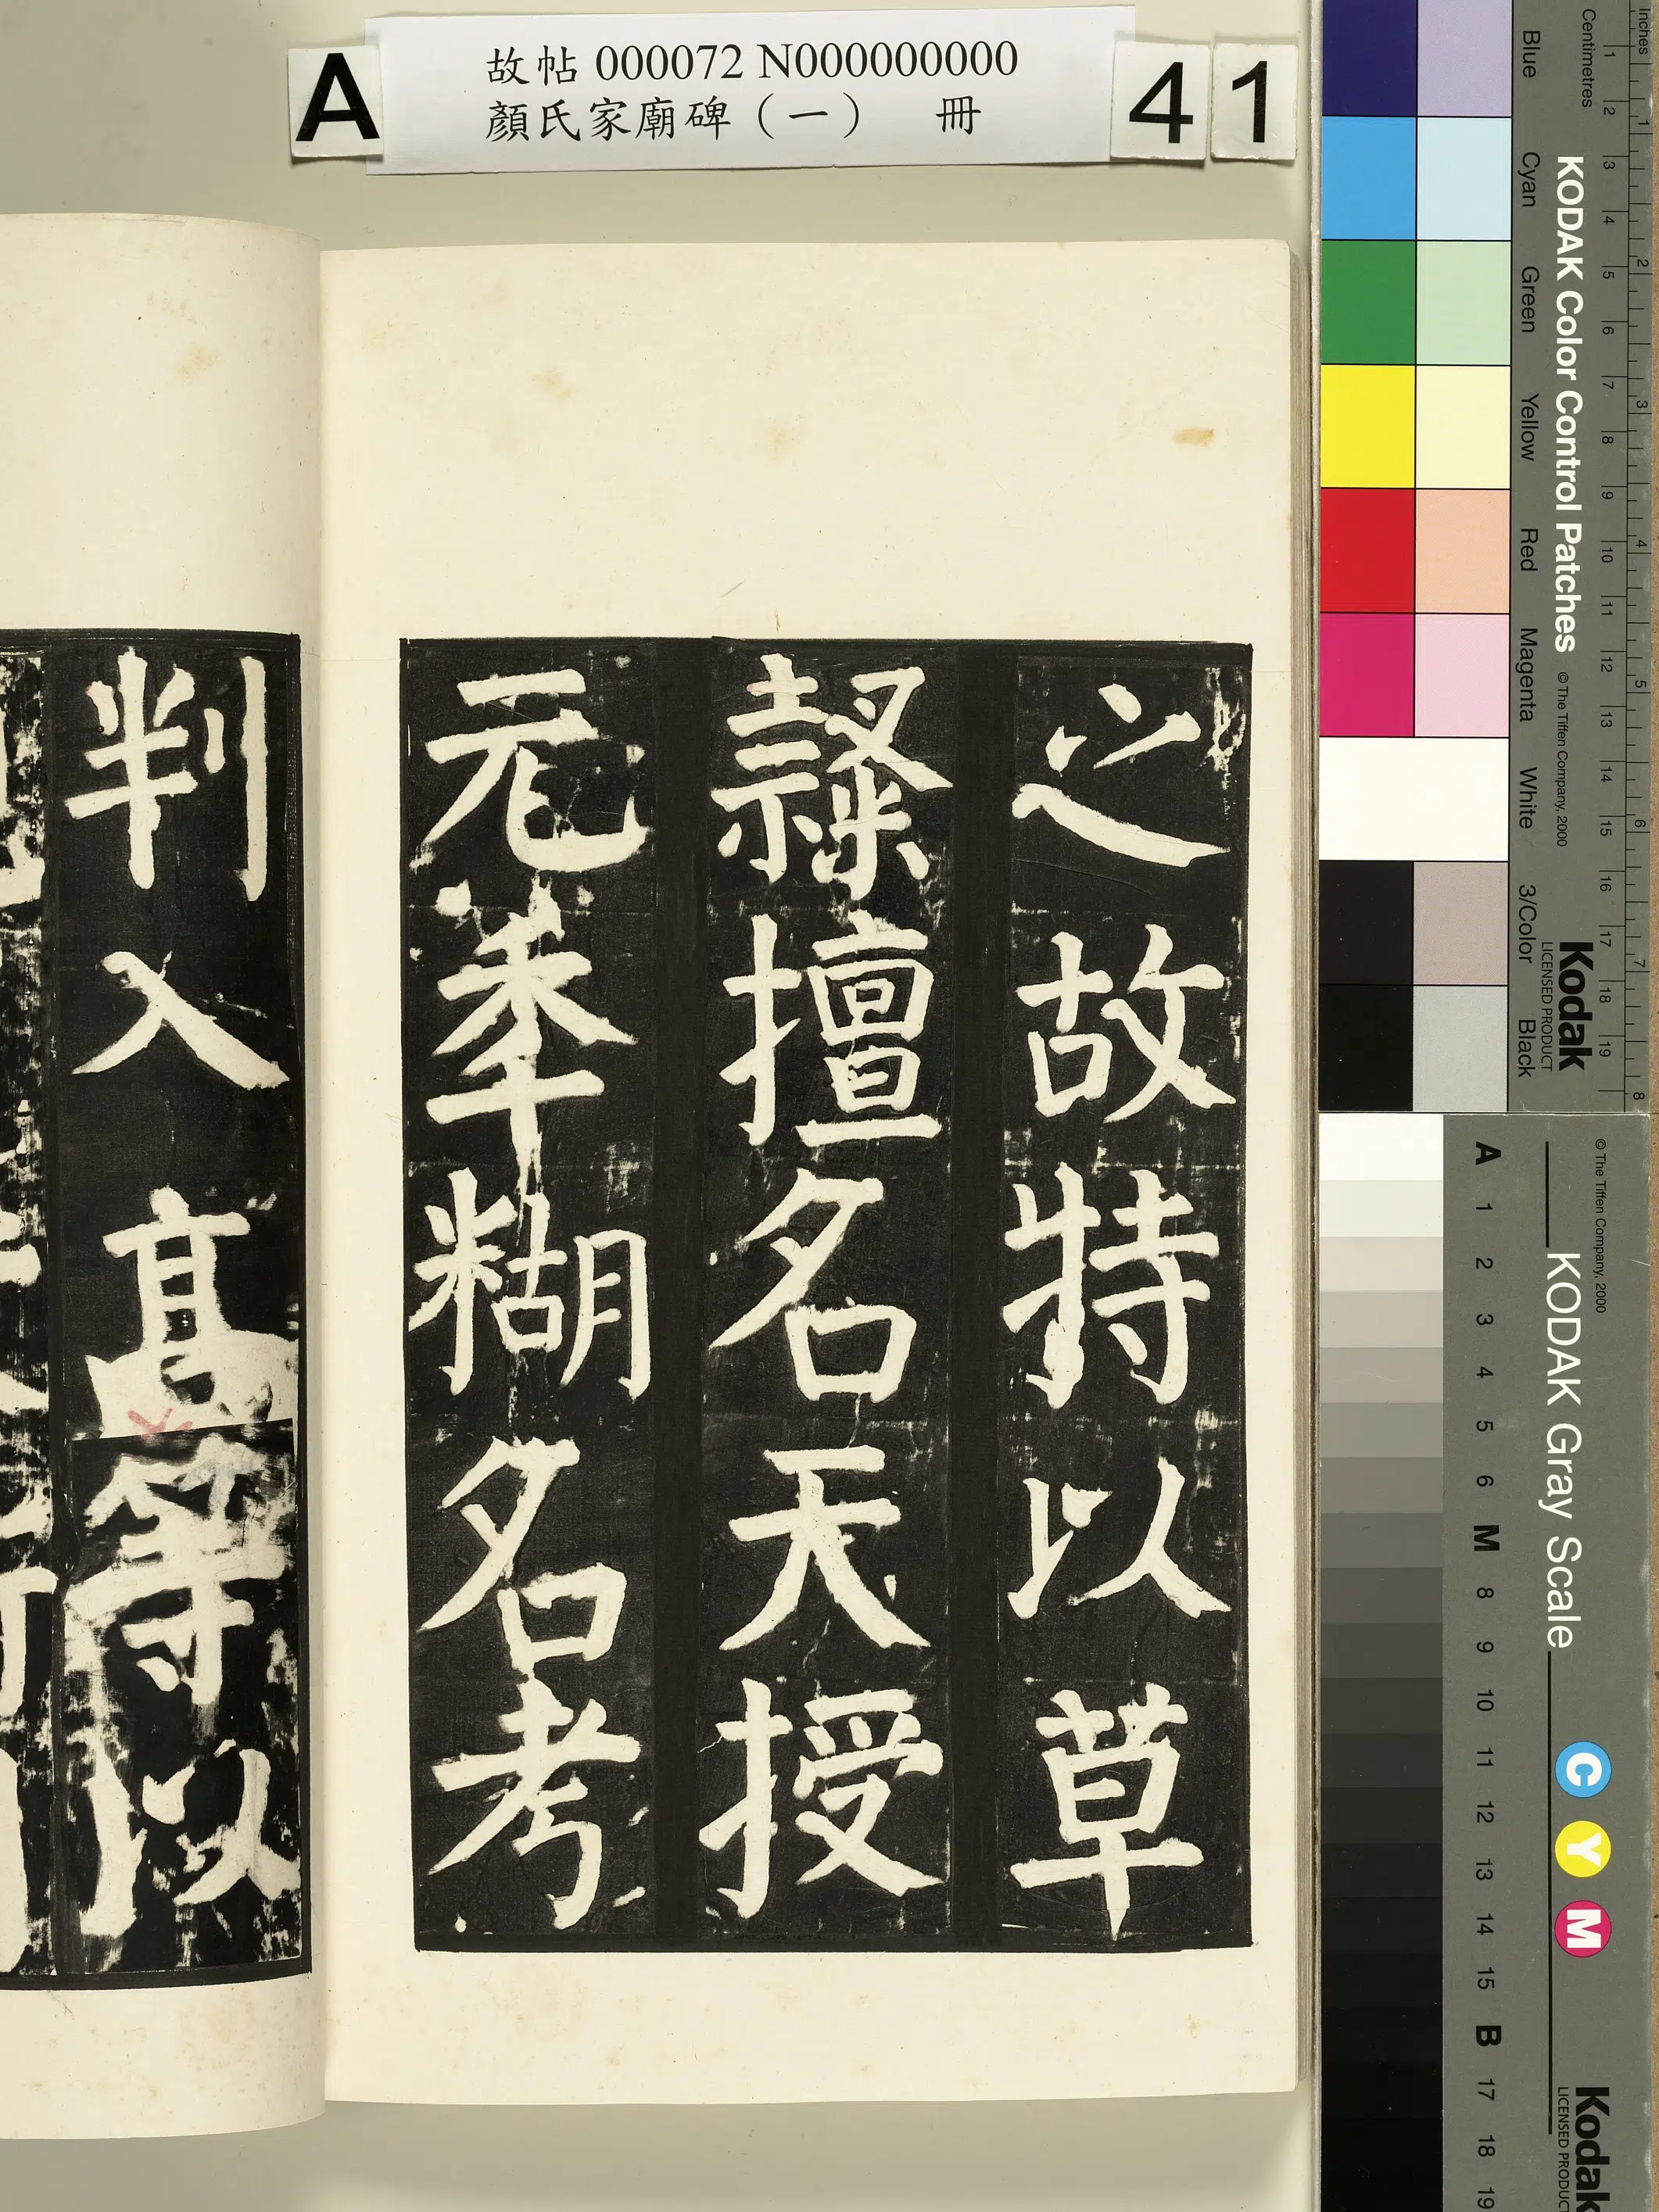 A
故帖 000072 N000000000
顏氏家廟碑（一） 冊
4 1
之故特以草
隸擅名天授
元年糊名考
判入高等以
Inches
Centimetres
1 2 3 4 5 6 7 8
1 2 3 4 5 6 7 8 9 10 11 12 13 14 15 16 17 18 19
KODAK Color Control Patches
© The Tiffen Company, 2000
Kodak
LICENSED PRODUCT
Blue Cyan Green Yellow Red Magenta White 3/Color Black
© The Tiffen Company, 2000
KODAK Gray Scale
C Y M
Kodak
LICENSED PRODUCT
A 1 2 3 4 5 6 M 8 9 10 11 12 13 14 15 B 17 18 19